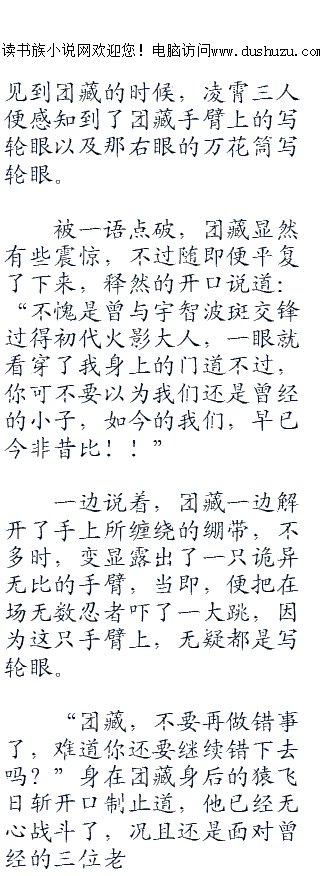 读书族小说网欢迎您！电脑访问www.dushuzu.com
见到团藏的时候，凌霄三人
便感知到了团藏手臂上的写
轮眼以及那右眼的万花筒写
轮眼。
被一语点破，团藏显然
有些震惊，不过随即便平复
了下来，释然的开口说道：
“不愧是曾与宇智波斑交锋
过得初代火影大人，一眼就
看穿了我身上的门道不过，
你可不要以为我们还是曾经
的小子，如今的我们，早已
今非昔比！！”
一边说着，团藏一边解
开了手上所缠绕的绷带，不
多时，变显露出了一只诡异
无比的手臂，当即，便把在
场无数忍者吓了一大跳，因
为这只手臂上，无疑都是写
轮眼。
“团藏，不要再做错事
了，难道你还要继续错下去
吗？”身在团藏身后的猿飞
日斩开口制止道，他已经无
心战斗了，况且还是面对曾
经的三位老